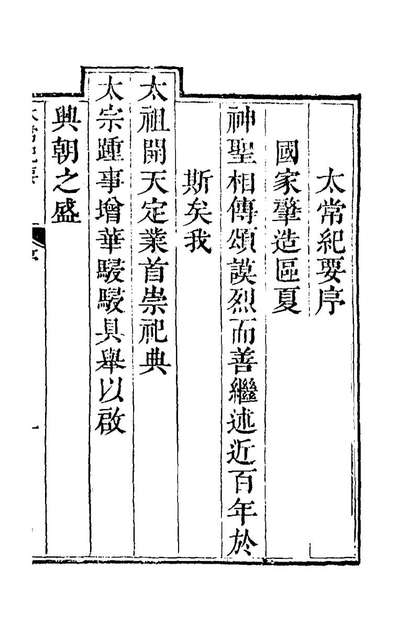 太常紀要序
國家肇造區夏
神聖相傳頌謨烈而善繼述近百年於
斯矣我
太祖開天定業首崇祀典
太宗踵事增華駸駸具舉以啟
興朝之盛